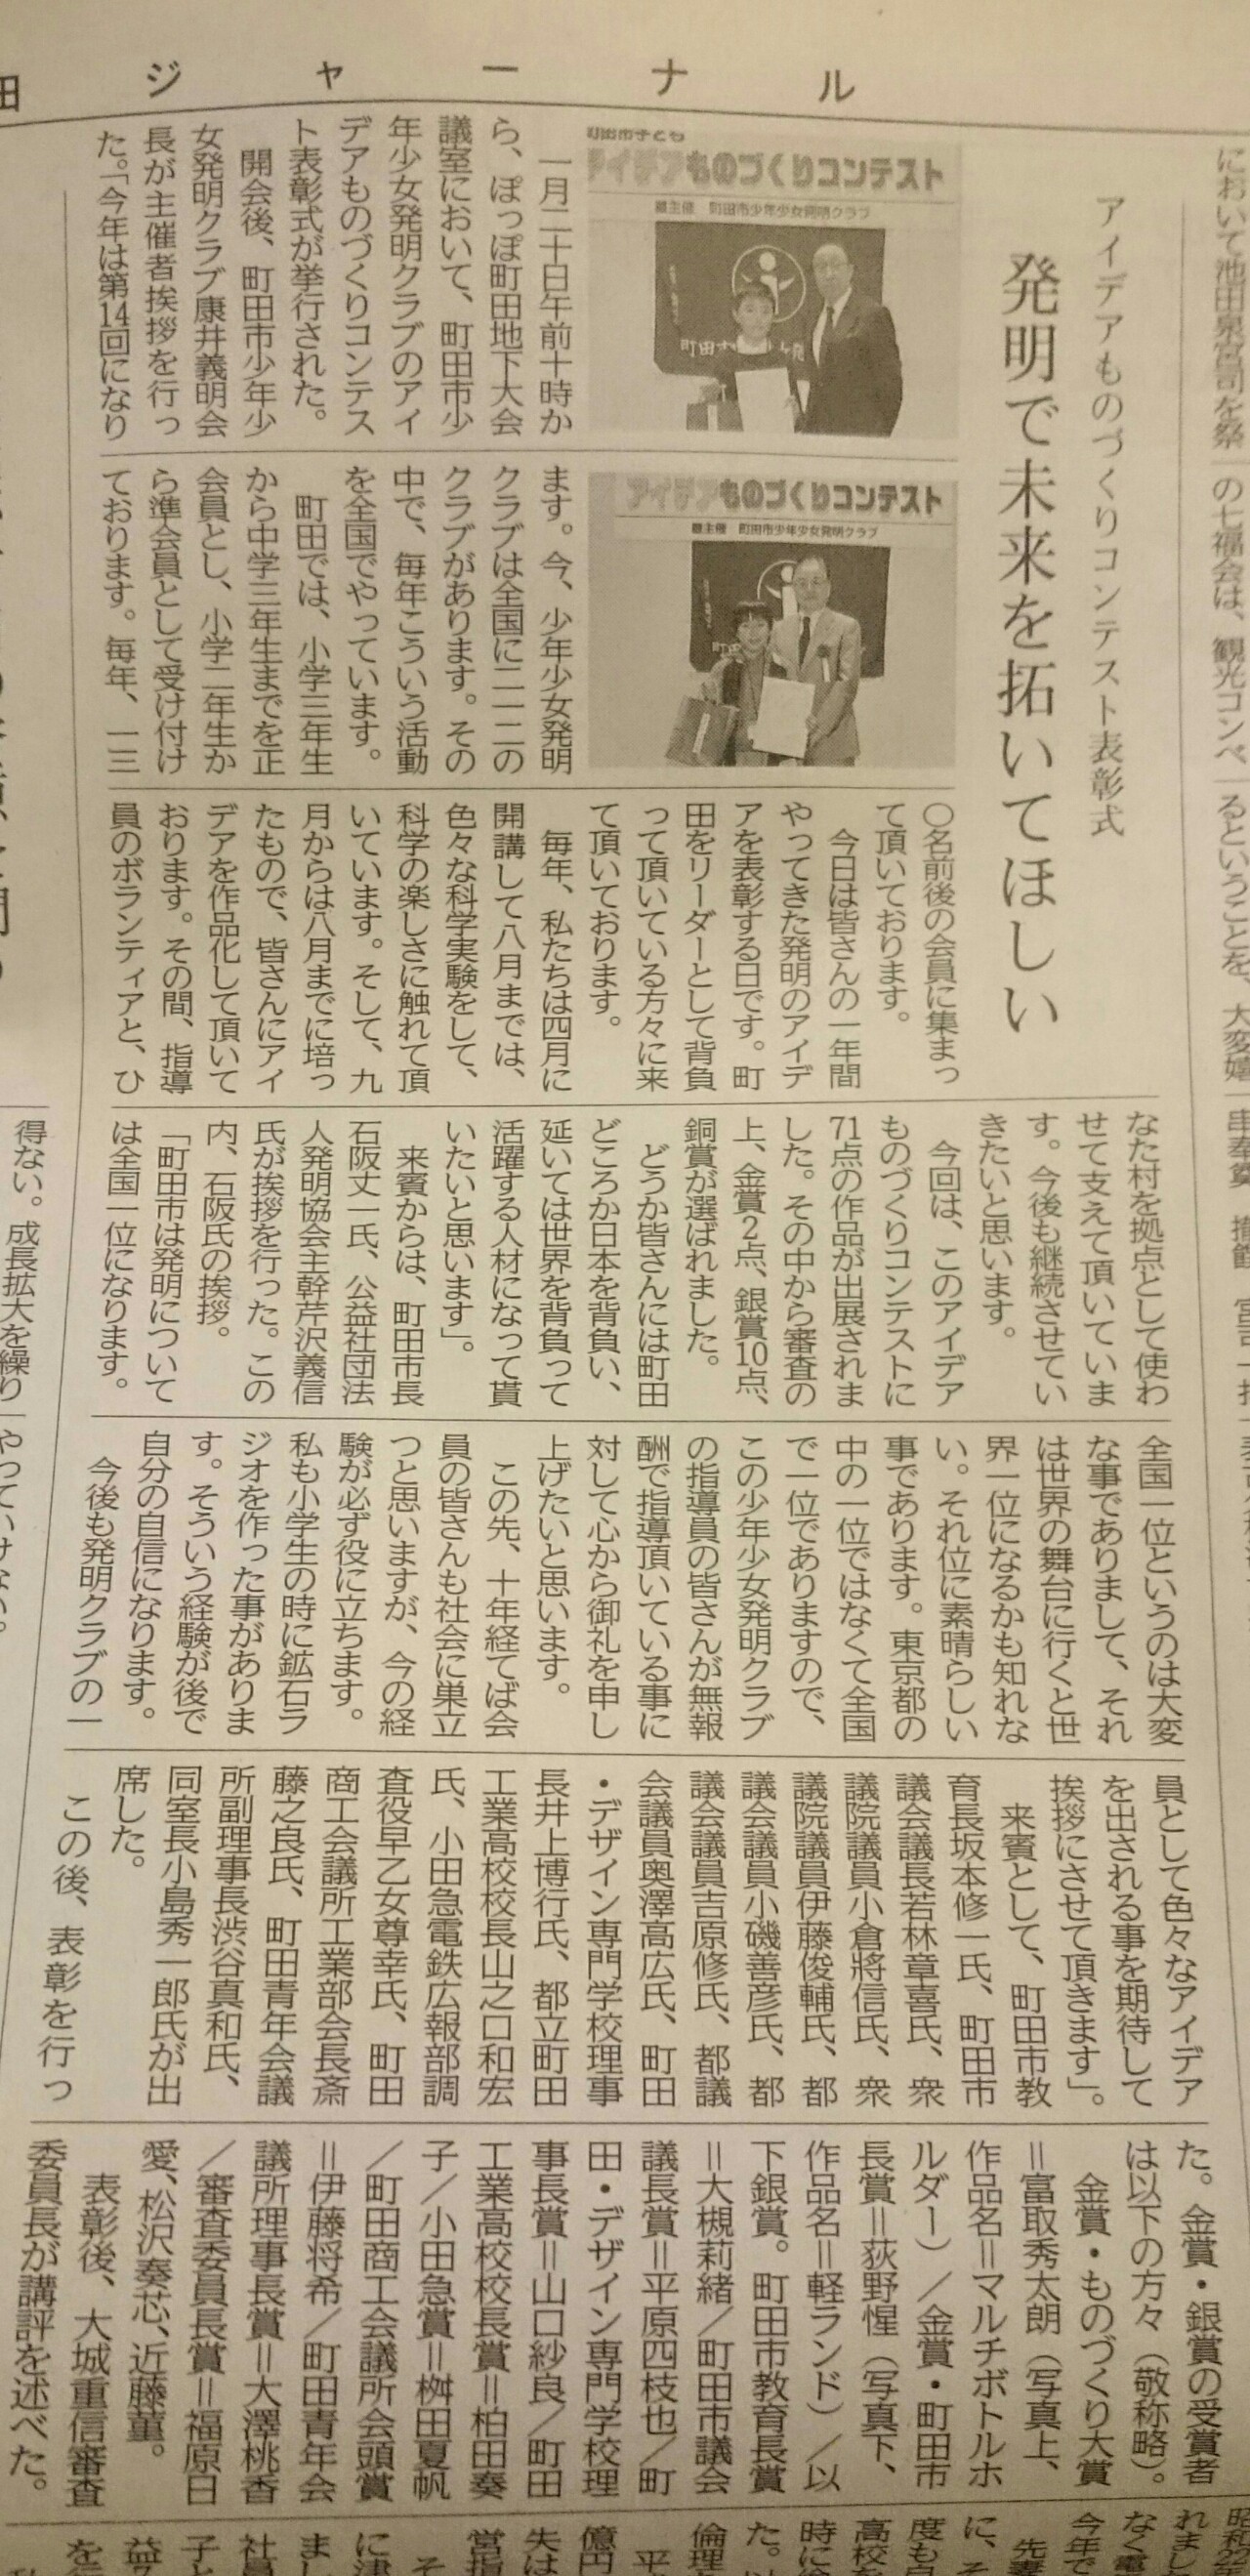 田ジャーナル
アイデアものづくりコンテスト表彰式
発明で未来を拓いてほしい
町田市子ども
アイデアものづくりコンテスト
主催 町田市少年少女発明クラブ
アイデアものづくりコンテスト
主催 町田市少年少女発明クラブ
一月二十日午前十時か
ら、ぽっぽ町田地下大会
議室において、町田市少
年少女発明クラブのアイ
デアものづくりコンテス
ト表彰式が挙行された。
開会後、町田市少年少
女発明クラブ康井義明会
長が主催者挨拶を行っ
た。「今年は第14回になり
ます。今、少年少女発明
クラブは全国に二一二の
クラブがあります。その
中で、毎年こういう活動
を全国でやっています。
町田では、小学三年生
から中学三年生までを正
会員とし、小学二年生か
ら準会員として受け付け
ております。毎年、一三
〇名前後の会員に集まっ
て頂いております。
今日は皆さんの一年間
やってきた発明のアイデ
アを表彰する日です。町
田をリーダーとして背負
って頂いている方々に来
て頂いております。
毎年、私たちは四月に
開講して八月までは、
色々な科学実験をして、
科学の楽しさに触れて頂
いています。そして、九
月からは八月までに培っ
たもので、皆さんにアイ
デアを作品化して頂いて
おります。その間、指導
員のボランティアと、ひ
なた村を拠点として使わ
せて支えて頂いていま
す。今後も継続させてい
きたいと思います。
今回は、このアイデア
ものづくりコンテストに
71点の作品が出展されま
した。その中から審査の
上、金賞2点、銀賞10点、
銅賞が選ばれました。
どうか皆さんには町田
どころか日本を背負い、
延いては世界を背負って
活躍する人材になって貰
いたいと思います」。
来賓からは、町田市長
石阪丈一氏、公益社団法
人発明協会主幹芹沢義信
氏が挨拶を行った。この
内、石阪氏の挨拶。
「町田市は発明について
は全国一位になります。
全国一位というのは大変
な事でありまして、それ
は世界の舞台に行くと世
界一位になるかも知れな
い。それ位に素晴らしい
事であります。東京都の
中の一位ではなくて全国
で一位でありますので、
この少年少女発明クラブ
の指導員の皆さんが無報
酬で指導頂いている事に
対して心から御礼を申し
上げたいと思います。
この先、十年経てば会
員の皆さんも社会に巣立
つと思いますが、今の経
験が必ず役に立ちます。
私も小学生の時に鉱石ラ
ジオを作った事がありま
す。そういう経験が後で
自分の自信になります。
今後も発明クラブの一
員として色々なアイデア
を出される事を期待して
挨拶にさせて頂きます」。
来賓として、町田市教
育長坂本修一氏、町田市
議会議長若林章喜氏、衆
議院議員小倉將信氏、衆
議院議員伊藤俊輔氏、都
議会議員小磯善彦氏、都
議会議員吉原修氏、都議
会議員奥澤高広氏、町田
・デザイン専門学校理事
長井上博行氏、都立町田
工業高校校長山之口和宏
氏、小田急電鉄広報部調
査役早乙女尊幸氏、町田
商工会議所工業部会長斎
藤之良氏、町田青年会議
所副理事長渋谷真和氏、
同室長小島秀一郎氏が出
席した。
この後、表彰を行っ
た。金賞・銀賞の受賞者
は以下の方々（敬称略）。
金賞・ものづくり大賞
＝富取秀太朗（写真上、
作品名＝マルチボトルホ
ルダー）／金賞・町田市
長賞＝荻野惺（写真下、
作品名＝軽ランド）／以
下銀賞。町田市教育長賞
＝大槻莉緒／町田市議会
議長賞＝平原四枝也／町
田・デザイン専門学校理
事長賞＝山口紗良／町田
工業高校校長賞＝柏田奏
子／小田急賞＝桝田夏帆
／町田商工会議所会頭賞
＝伊藤将希／町田青年会
議所理事長賞＝大澤桃香
／審査委員長賞＝福原日
愛、松沢奏芯、近藤菫。
表彰後、大城重信審査
委員長が講評を述べた。
において池田泉宮司を祭
の七福会は、観光コンベ
るということを、大変嬉
得ない。成長拡大を繰り
やっていけない。